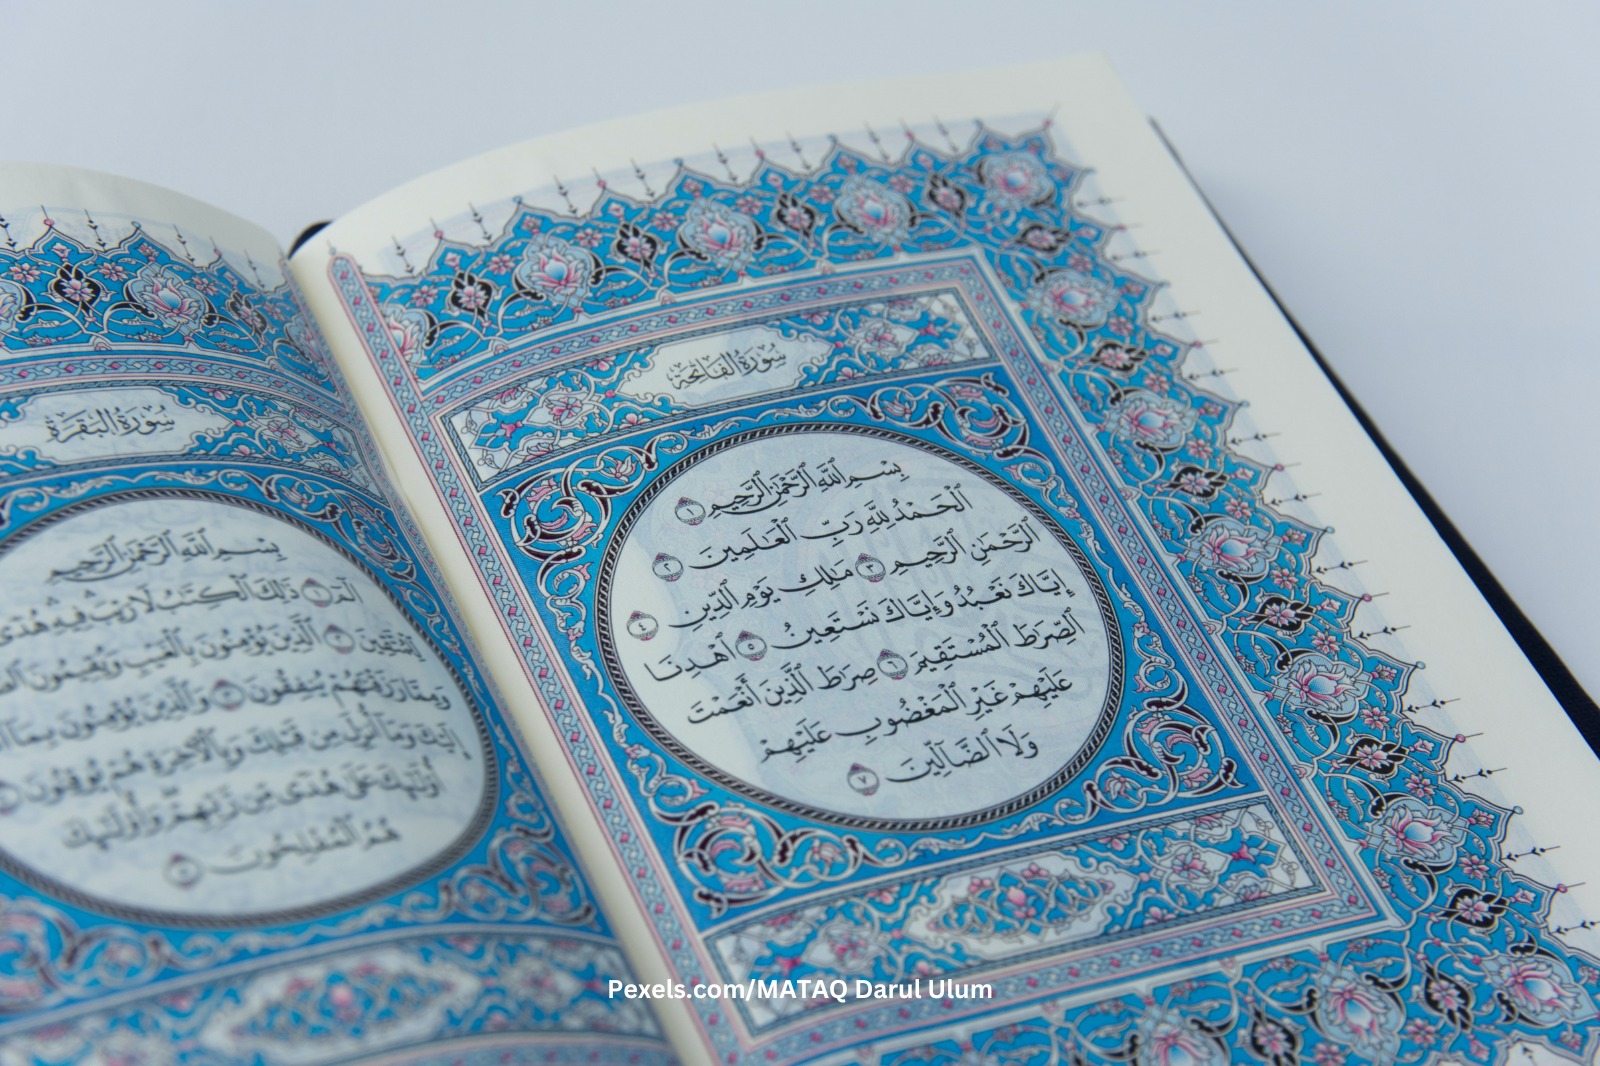 سُورَةُ الفَاتِحَةِ
بِسْمِ ٱللَّهِ ٱلرَّحْمَٰنِ ٱلرَّحِيمِ ١
ٱلْحَمْدُ لِلَّهِ رَبِّ ٱلْعَٰلَمِينَ ٢
ٱلرَّحْمَٰنِ ٱلرَّحِيمِ ٣ مَٰلِكِ يَوْمِ ٱلدِّينِ ٤
إِيَّاكَ نَعْبُدُ وَإِيَّاكَ نَسْتَعِينُ ٥ ٱهْدِنَا
ٱلصِّرَٰطَ ٱلْمُسْتَقِيمَ ٦ صِرَٰطَ ٱلَّذِينَ أَنْعَمْتَ
عَلَيْهِمْ غَيْرِ ٱلْمَغْضُوبِ عَلَيْهِمْ
وَلَا ٱلضَّآلِّينَ ٧
سُورَةُ البَقَرَةِ
بِسْمِ ٱللَّهِ ٱلرَّحْمَٰنِ ٱلرَّحِيمِ
الٓمٓ ١ ذَٰلِكَ ٱلْكِتَٰبُ لَا رَيْبَ فِيهِ هُدًى
لِّلْمُتَّقِينَ ٢ ٱلَّذِينَ يُؤْمِنُونَ بِٱلْغَيْبِ وَيُقِيمُونَ
وَمِمَّا رَزَقْنَٰهُمْ يُنفِقُونَ ٣ وَٱلَّذِينَ يُؤْمِنُونَ بِمَآ
إِلَيْكَ وَمَآ أُنزِلَ مِن قَبْلِكَ وَبِٱلْءَاخِرَةِ هُمْ يُوقِنُونَ
أُو۟لَٰٓئِكَ عَلَىٰ هُدًى مِّن رَّبِّهِمْ وَأُو۟لَٰٓئِكَ
هُمُ ٱلْمُفْلِحُونَ ٥
Pexels.com/MATAQ Darul Ulum